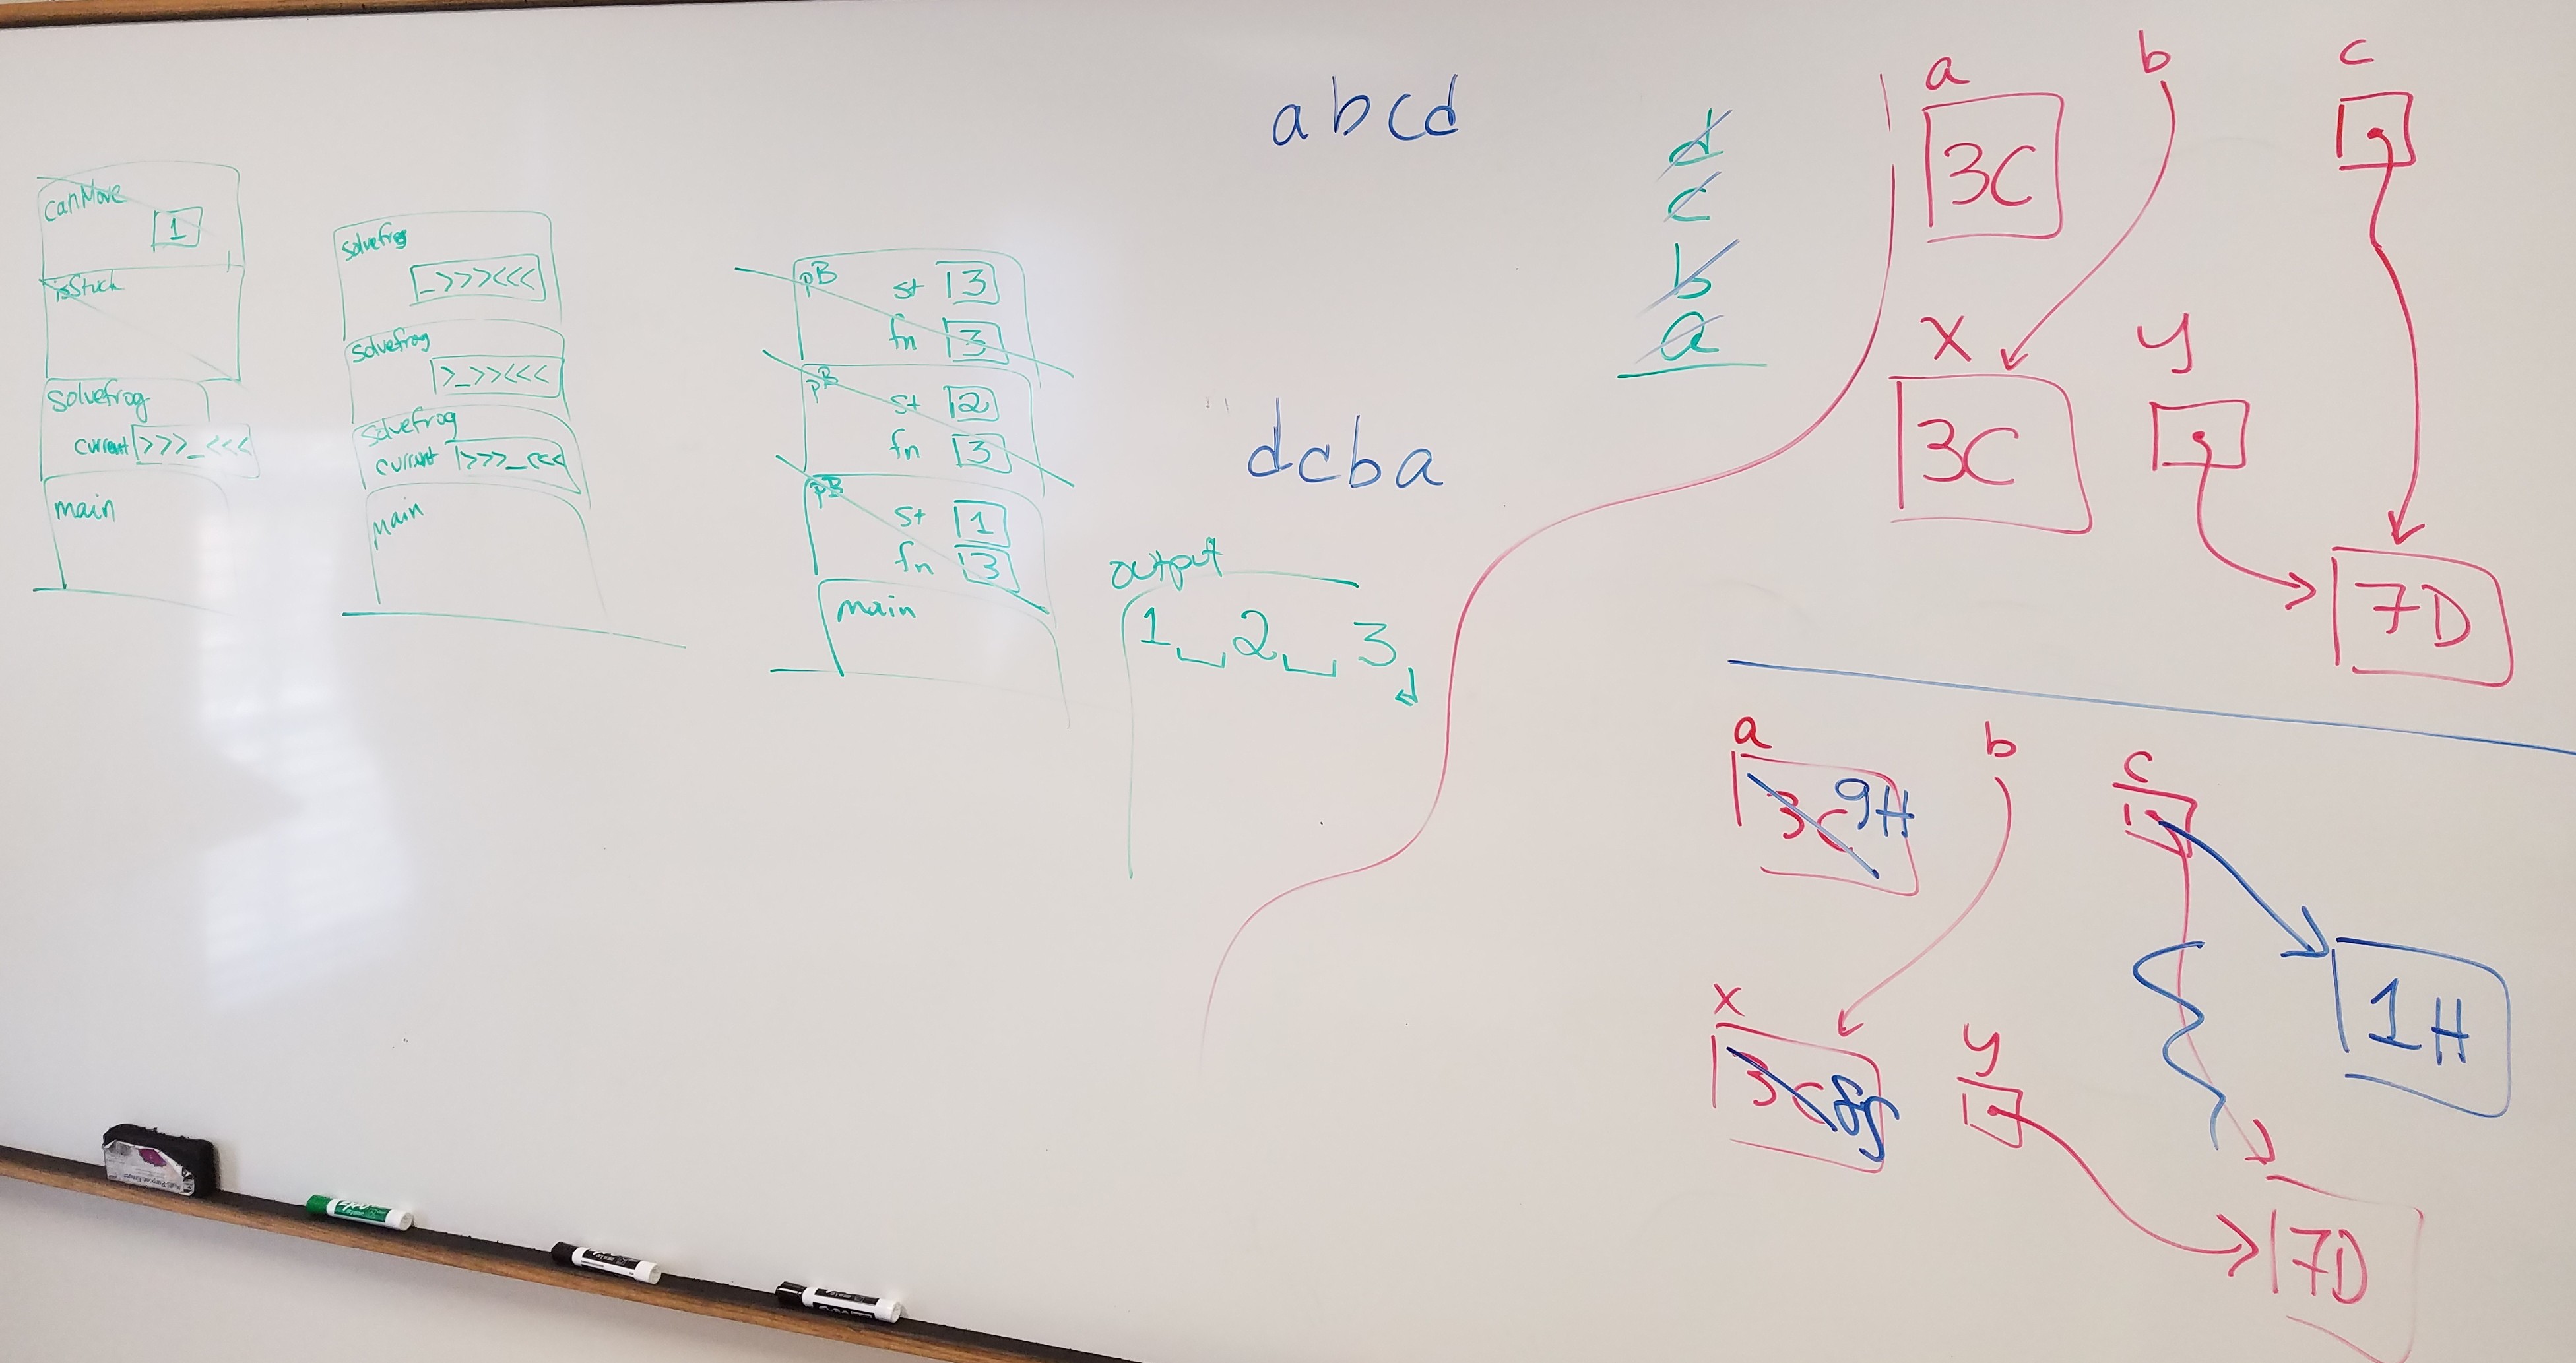 canMove
1
isStuck
solvefrog
current >>>_<<<
main
solvefrog
_>>><<<
solvefrog
>_>><<<
solvefrog
current >>>_<<<
main
pB st 3
fn 3
pB st 2
fn 3
pB st 1
fn 3
main
output
1␣2␣3
abcd
dcba
d
c
b
a
a b c
3C
x y
3C
7D
a b c
3C 9H
1H
x y
3C 8S
7D